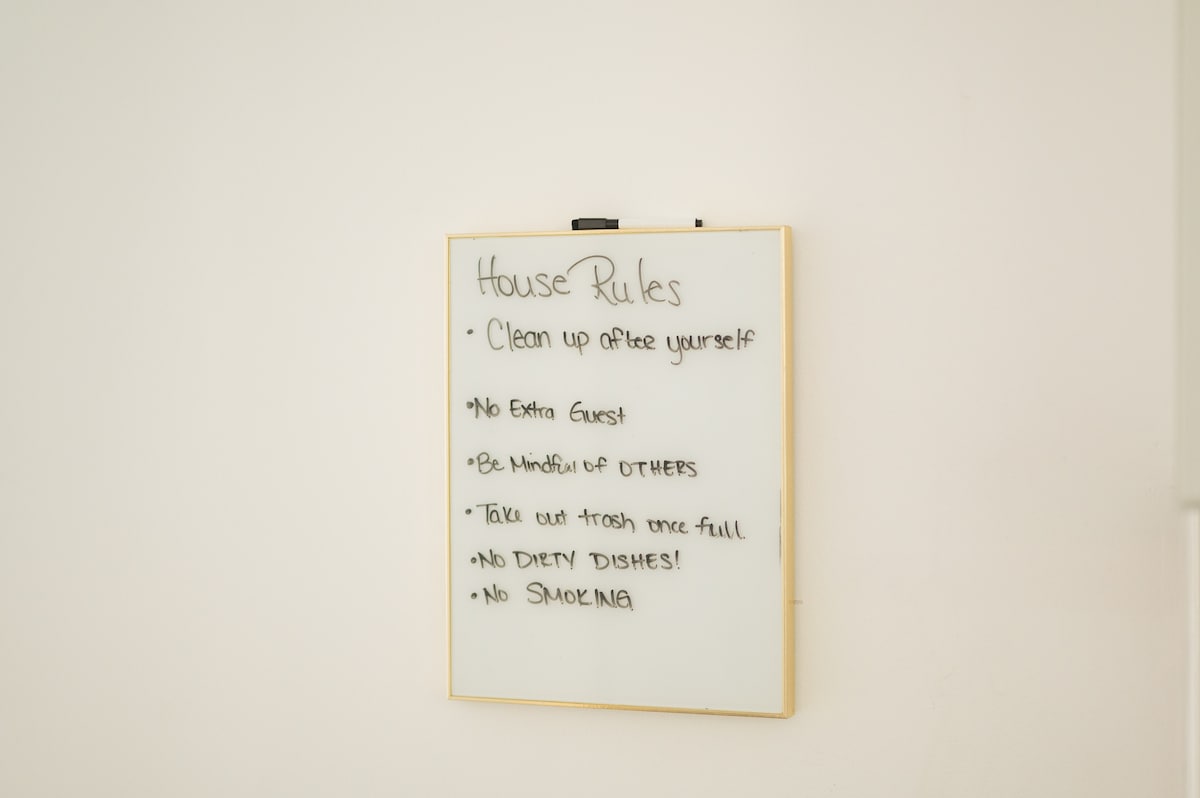 House Rules
• Clean up after yourself
• No Extra Guest
• Be Mindful of OTHERS
• Take out trash once full.
• NO DIRTY DISHES!
• No SMOKING